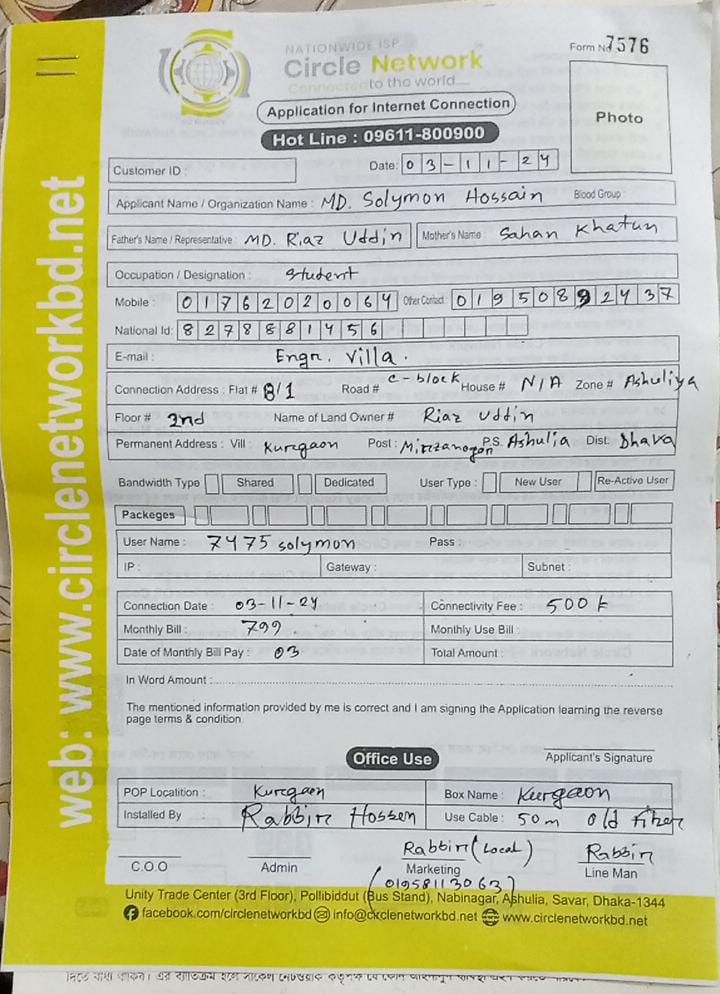 NATIONWIDE ISP
Circle Network
Connected to the world....
Form No 7576
Photo
Application for Internet Connection
Hot Line : 09611-800900
Customer ID :
Date: 03-11-24
Applicant Name / Organization Name : MD. Solymon Hossain Blood Group :
Father's Name / Representative : MD. Riaz Uddin Mother's Name : Sahan Khatun
Occupation / Designation : Student
Mobile : 01762020064 Other Contact : 01950892437
National Id: 8278881456
E-mail : Engr. Villa.
Connection Address : Flat # 8/1 Road # C-block House # N/A Zone # Ashuliya
Floor # 2nd Name of Land Owner # Riaz Uddin
Permanent Address : Vill : Kurgaon Post : Mirzanagon P.S. Ashulia Dist. Dhaka
Bandwidth Type Shared Dedicated User Type : New User Re-Active User
Packeges
User Name : 7475 solymon Pass :
IP : Gateway : Subnet :
Connection Date : 03-11-24 Connectivity Fee : 500 k
Monthly Bill : 799. Monthly Use Bill :
Date of Monthly Bill Pay : 03 Total Amount :
In Word Amount :
The mentioned information provided by me is correct and I am signing the Application learning the reverse
page terms & condition
Applicant's Signature
Office Use
POP Locatition : Kurgaon Box Name : Kurgaon
Installed By Rabbin Hossen Use Cable : 50m Old Fiber
Rabbin (Local) Rabbin
C.O.O Admin Marketing Line Man
(01958113063)
Unity Trade Center (3rd Floor), Pollibiddut (Bus Stand), Nabinagar, Ashulia, Savar, Dhaka-1344
facebook.com/circlenetworkbd info@circlenetworkbd.net www.circlenetworkbd.net
web: www.circlenetworkbd.net